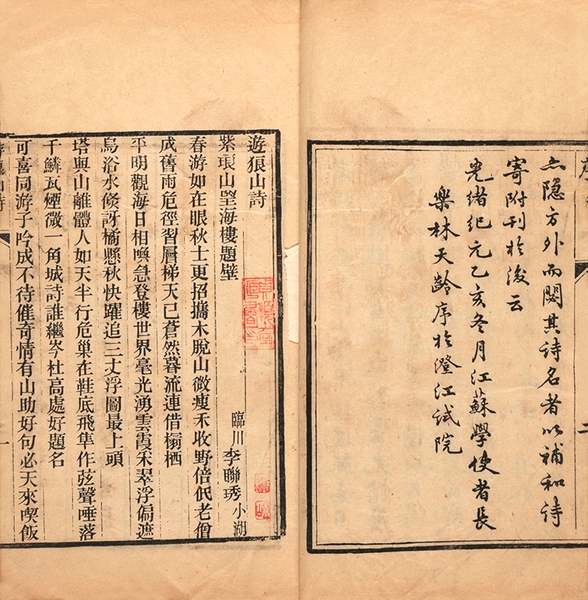 亡隐方外而闕其詩名者以補和詩
寄附刊於後云
光緒紀元乙亥冬月江蘇學使者長
樂林天齡序於澄江試院
遊狼山詩
臨川李聯琇小湖
紫琅山望海樓題壁
春游如在眼秋士更招攜木脫山微瘦禾收野倍低老僧
成舊雨危徑習層梯天已蒼然暮流連借榻栖
平明觀海日相喚急登樓世界毫光湧雲霞采翠浮偏遮
烏浴水倏訝橘懸秋快躍追三丈浮圖最上頭
塔與山離體人如天半行危巢在鞋底飛隼作弦聲唾落
千鱗瓦煙微一角城詩誰繼岑杜高處好題名
可喜同游子吟成不待催奇情有山助好句必天來喫飯